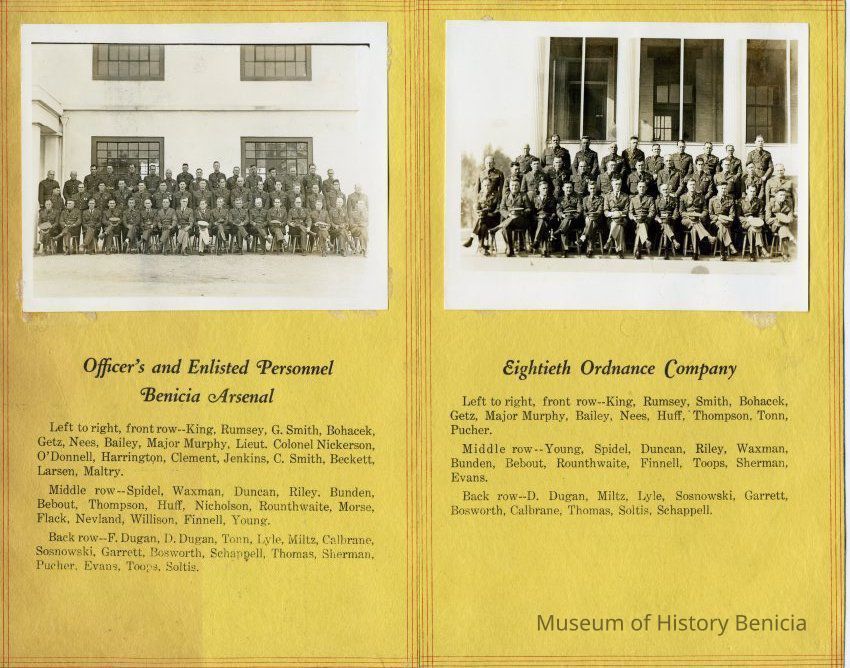 Officer's and Enlisted Personnel
Benicia Arsenal
Left to right, front row--King, Rumsey, G. Smith, Bohacek,
Getz, Nees, Bailey, Major Murphy, Lieut. Colonel Nickerson,
O'Donnell, Harrington, Clement, Jenkins, C. Smith, Beckett,
Larsen, Maltry.
Middle row--Spidel, Waxman, Duncan, Riley, Bunden,
Bebout, Thompson, Huff, Nicholson, Rounthwaite, Morse,
Flack, Nevland, Willison, Finnell, Young.
Back row--F. Dugan, D. Dugan, Tonn, Lyle, Miltz, Calbrane,
Sosnowski, Garrett, Bosworth, Schappell, Thomas, Sherman,
Pucher, Evans, Toops, Soltis.
Eightieth Ordnance Company
Left to right, front row--King, Rumsey, Smith, Bohacek,
Getz, Major Murphy, Bailey, Nees, Huff, Thompson, Tonn,
Pucher.
Middle row--Young, Spidel, Duncan, Riley, Waxman,
Bunden, Bebout, Rounthwaite, Finnell, Toops, Sherman,
Evans.
Back row--D. Dugan, Miltz, Lyle, Sosnowski, Garrett,
Bosworth, Calbrane, Thomas, Soltis, Schappell.
Museum of History Benicia